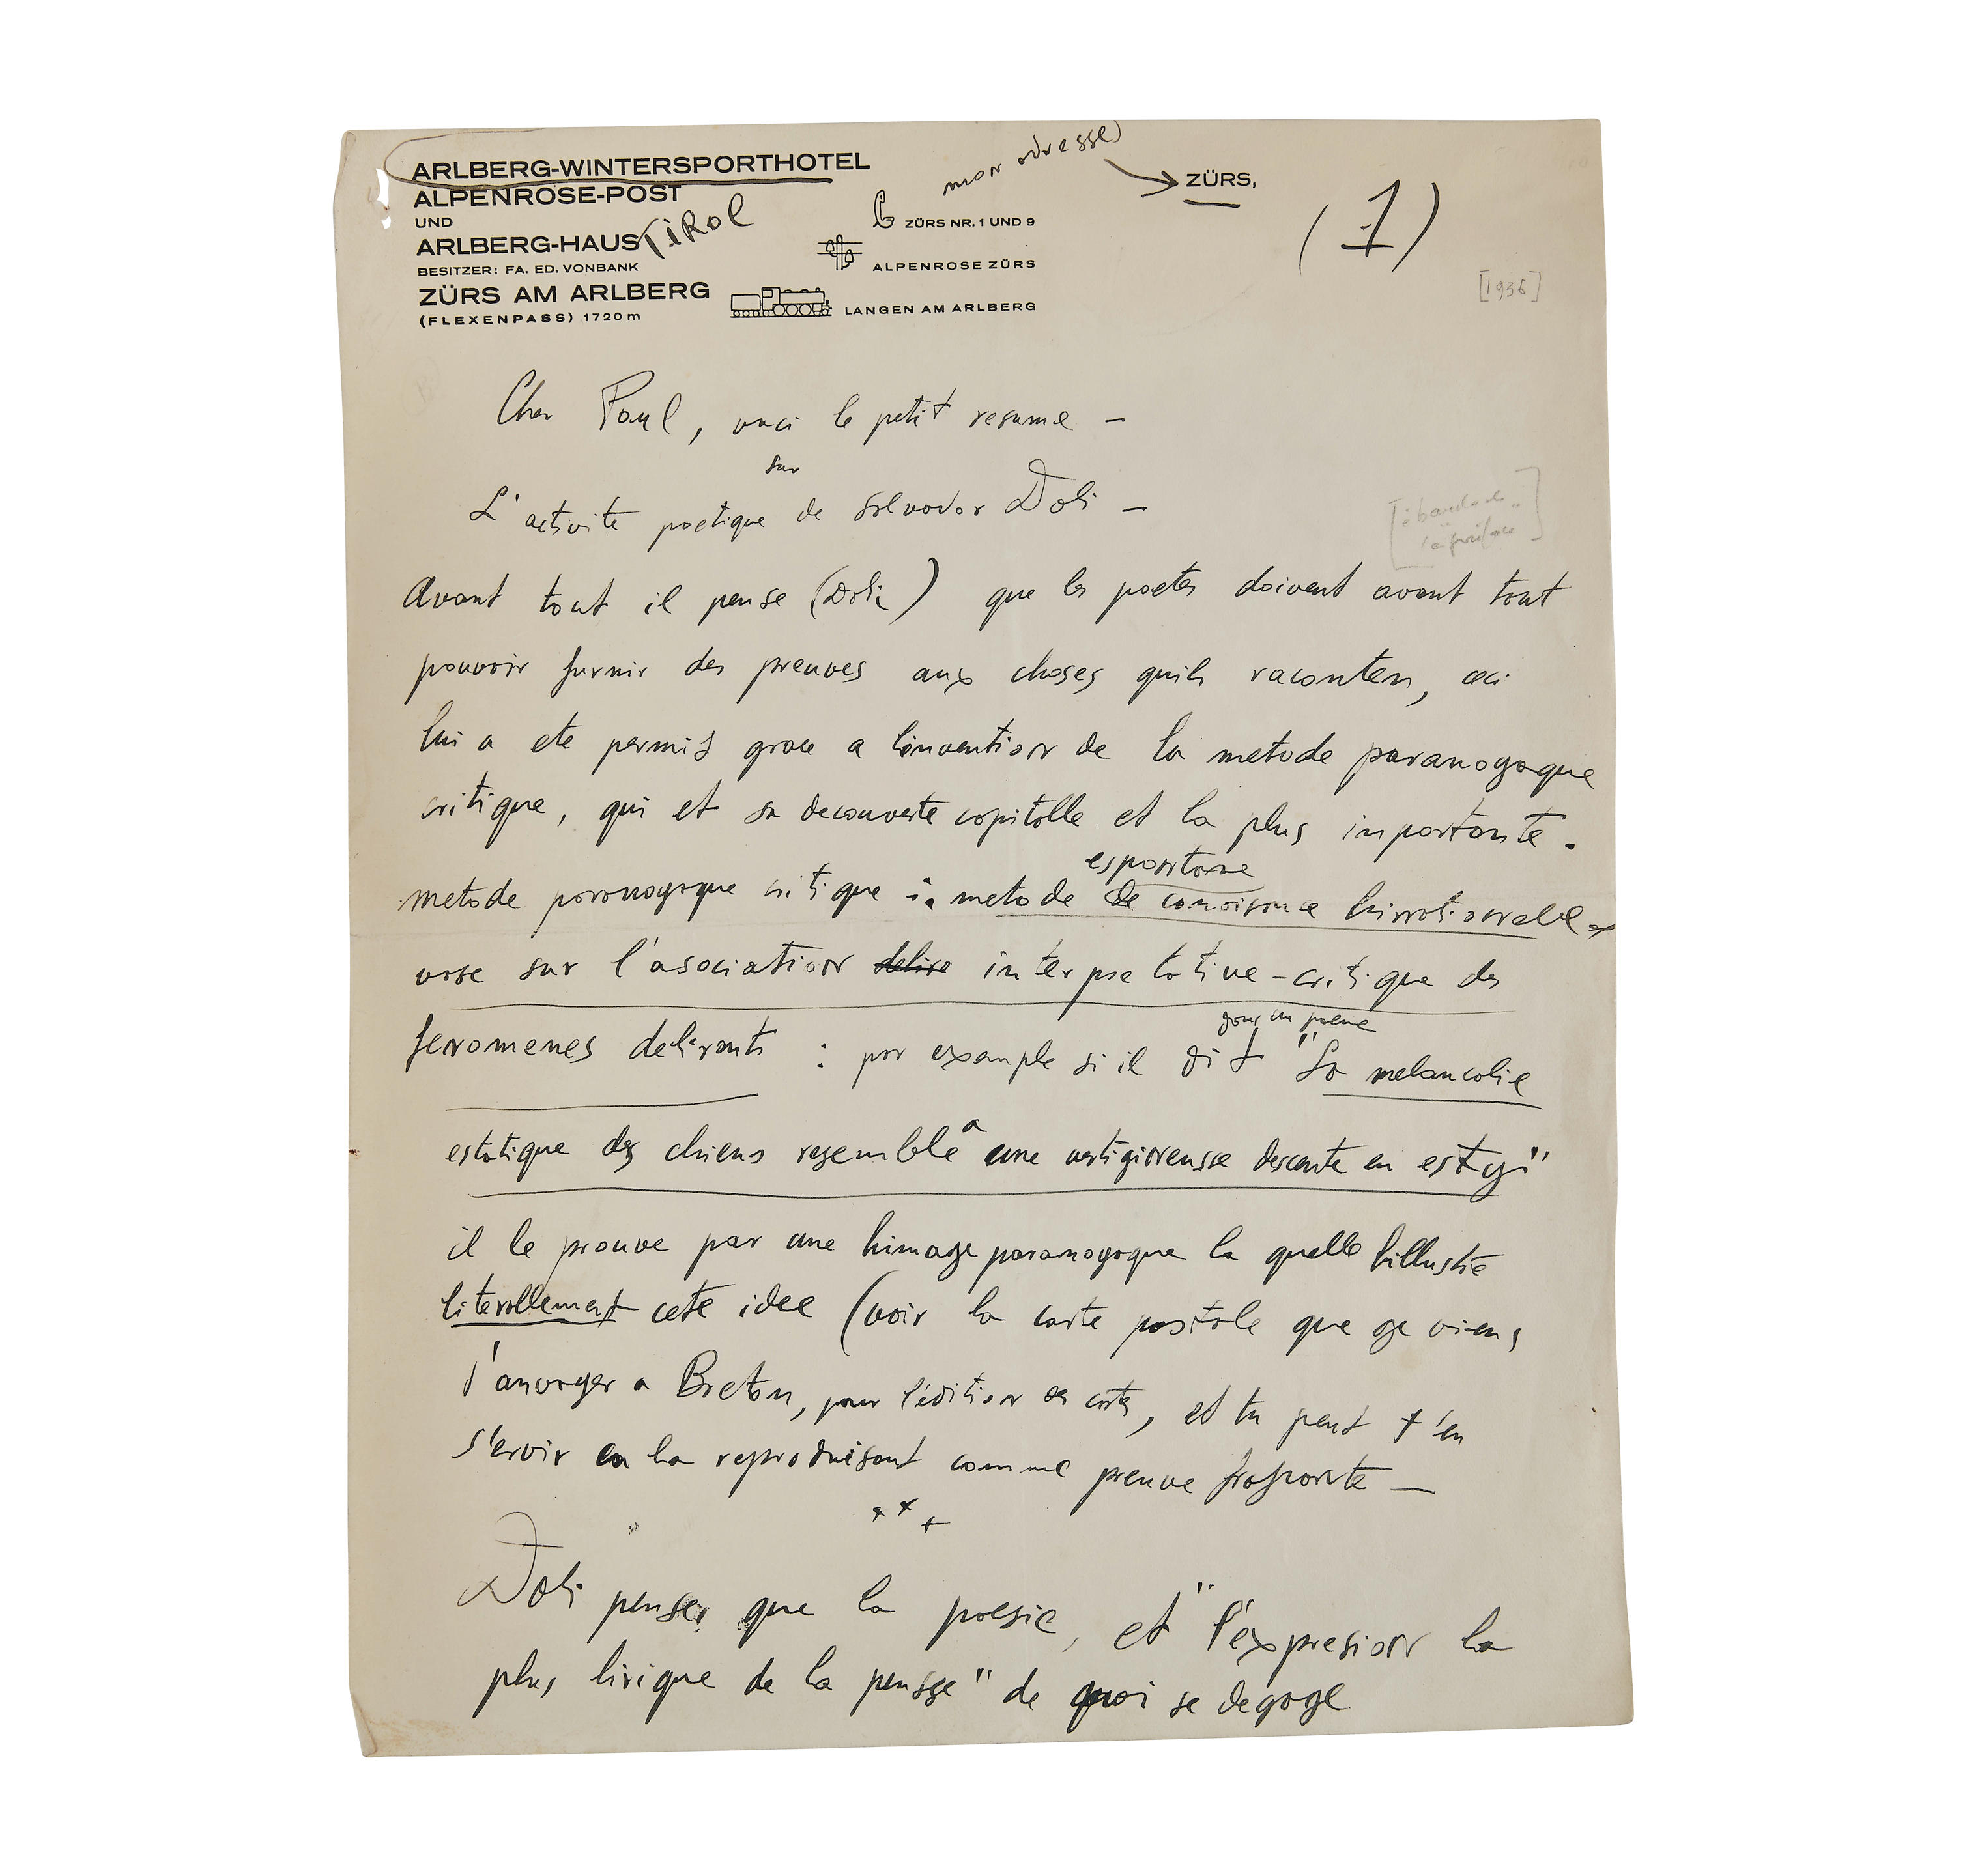 ARLBERG-WINTERSPORTHOTEL
ALPENROSE-POST
UND
ARLBERG-HAUS
TiRol
BESITZER: FA. ED. VONBANK
ZÜRS AM ARLBERG
(FLEXENPASS) 1720 m
mon adresse
ZÜRS,
ZÜRS NR. 1 UND 9
ALPENROSE ZÜRS
LANGEN AM ARLBERG
(1)
[1936]
Cher Paul, voici le petit resume —
sur
L'activite poetique de Salvador Dali —
Avant tout il pense (Dali) que les poetes doivent avant tout
pouvoir furnir des preuves aux choses quils raconten, ceci
lui a ete permis grace a l'invention de la metode paranogaque
critique, qui et sa decouverte capitalle et la plus inportante.
espontane
metode paranogaque critique : metode de conoisance hirrationnelle
vase sur l'asociation delire interpretative-critique des
fenomenes delirants : par exemple si il dit "La melancolie
dans un poeme
estatique des chiens resemble a une vertigineusse descente en esky"
il le prouve par une himage paranogaque la quelle hillustre
literallement cete idee (voir la carte postale que ge viens
d'anvoyer a Breton, pour l'edition des cartes, et tu peut t'en
s'ervir en la reproduisant comme preuve frapante —
Dali pense, que la poesie, et "l'expresion la
plus lirique de la pensee" de quoi se degage